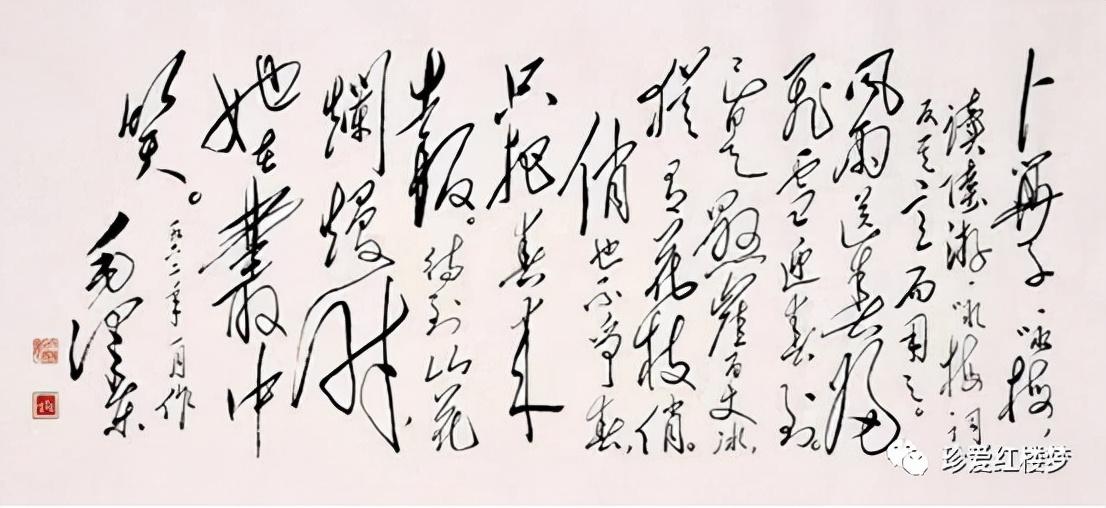 卜算子·咏梅,
讀陸游·咏梅词
反其意而用之。
风雨送春归
飛雪迎春到。
已是懸崖百丈冰,
犹有花枝俏。
俏也不争春,
只把春来
報。待到山花
爛熳时,
她在叢中
笑。
一九六二年一月作
毛泽东
珍爱红楼梦